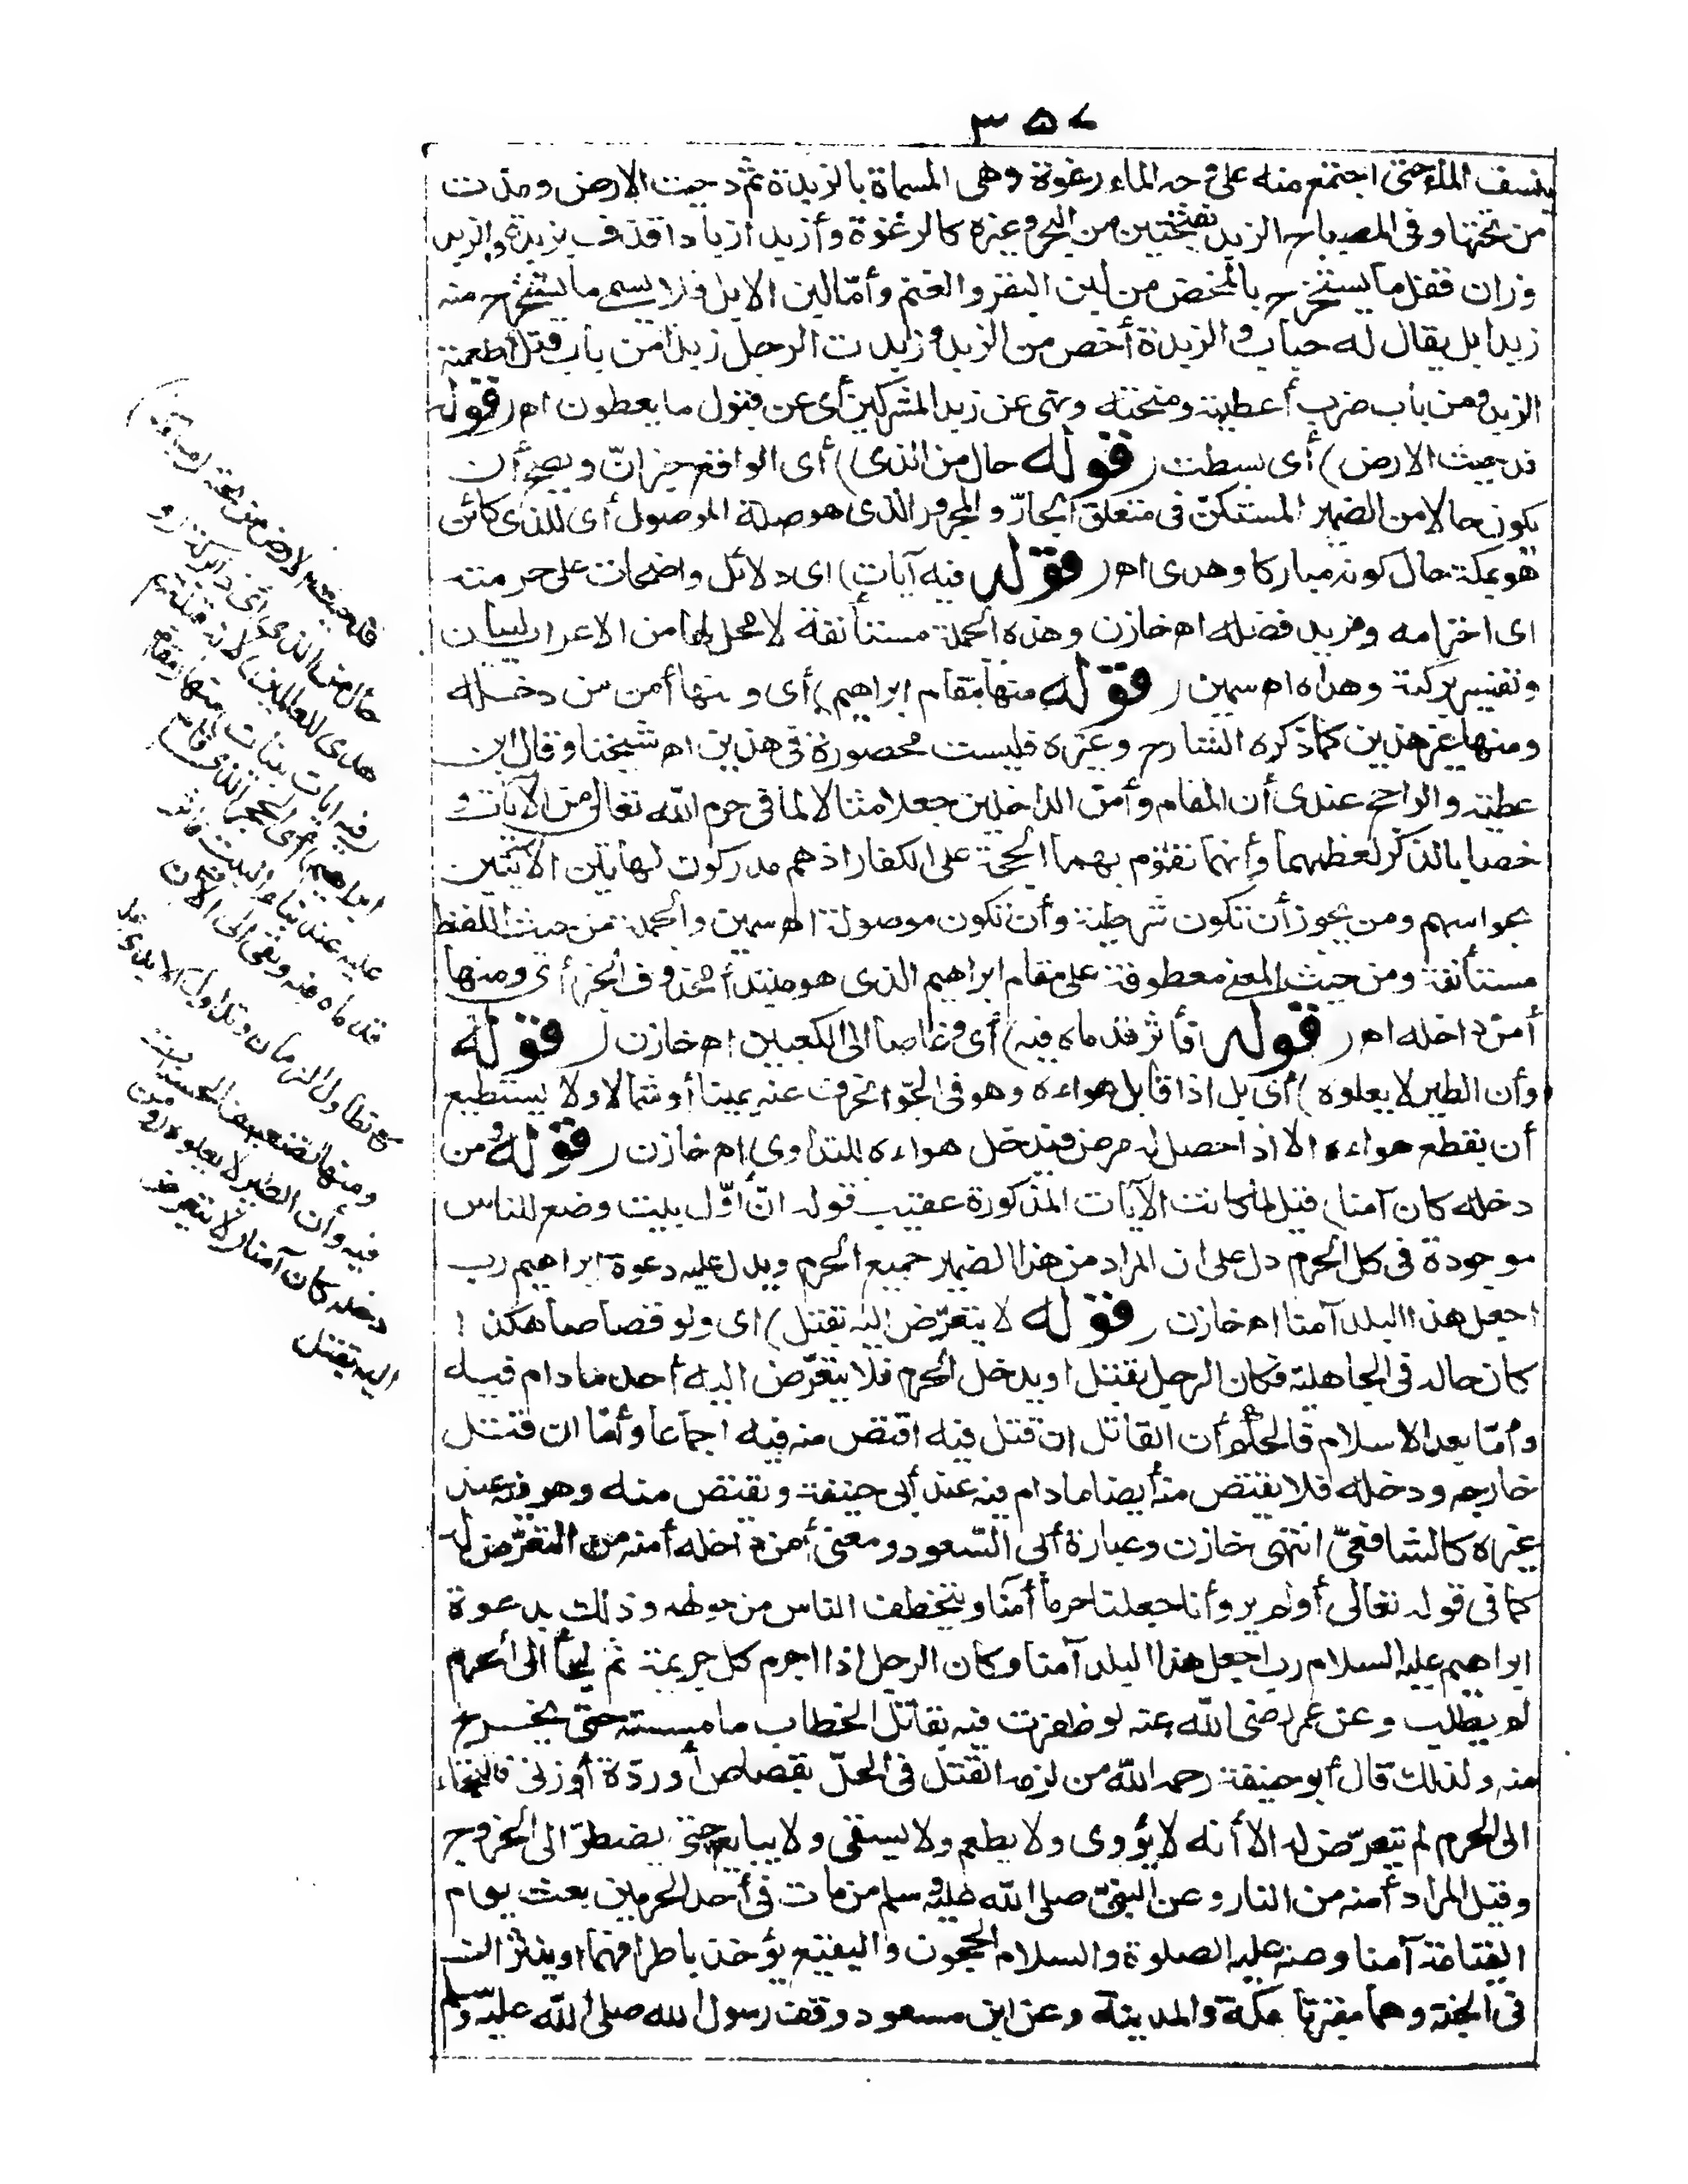 ٣٥٧
ينسف الماء حتى اجتمع منه على وجه الماء رغوة وهى المسماة بالزبدة ثم دحيت الارض ومدّت
من تحتها وفى المصباح الزبد بفتحتين من البحر وغيره كالرغوة وأزبد ازبادا قذف بزبده والزبد
وزان قفل ما يستخرج بالمخض من لبن البقر والغنم وأمّا لبن الابل فلا يسمى ما يستخرج منه
زبدا بل يقال له حباب والزبدة أخص من الزبد وزبدت الرجل زبدا من باب قتل أطعمته
الزبد ومن باب ضرب أعطيته ومنحته ونهى عن زبد المشركين أى عن قبول ما يعطون اهـ (قوله
فدحيت الارض) أى بسطت (قوله حال من الذى) أى الواقع خبر انّ ويصح أن
يكون حالا من الضمير المستكنّ فى متعلق الجارّ والمجرور الذى هو صلة الموصول أى للذى كائن
هو ببكة حال كونه مباركا وهدى اهـ (قوله فيه آيات) اى دلائل واضحات على حرمته
اى احترامه ومزيد فضله اهـ خازن وهذه الجملة مستأنفة لا محل لها من الاعراب لبيان
وتفسير بركته وهداه اهـ سمين (قوله منها مقام ابراهيم) أى ومنها أمن من دخله
ومنها غير هذين كما ذكره الشارح وغيره فليست محصورة فى هذين اهـ شيخنا وقال ابن
عطية والراجح عندى أن المقام وأمن الداخلين جعلا مثالا لما فى حرم الله تعالى من الآيات و
خصا بالذكر لعظمهما وأنهما تقوم بهما الحجة على الكفار اذ هم مدركون لهاتين الآيتين
بحواسهم ومن يجوز أن تكون شرطية وأن تكون موصولة اهـ سمين والجملة من حيث اللفظ
مستأنفة ومن حيث المعنى معطوفة على مقام ابراهيم الذى هو مبتدأ محذوف الخبر أى ومنها
أمن داخله اهـ (قوله فأثر قدماه فيه) أى وغاصا الى الكعبين اهـ خازن (قوله
وأن الطير لا يعلوه) أى بل اذا قابل هواءه وهو فى الجوّ انحرف عنه يمينا أو شمالا ولا يستطيع
أن يقطع هواءه الا اذا حصل له مرض فيدخل هواءه للتداوى اهـ خازن (قوله ومن
دخله كان آمنا) قيل لما كانت الآيات المذكورة عقيب قوله انّ أوّل بيت وضع للناس
موجودة فى كل الحرم دل على ان المراد من هذا الضمير جميع الحرم ويدل عليه دعوة ابراهيم رب
اجعل هذا البلد آمنا اهـ خازن (قوله لا يتعرّض اليه بقتل) اى ولو قصاصا هكذا
كان حاله فى الجاهلية فكان الرجل يقتل اويدخل الحرم فلا يتعرّض اليه أحد ما دام فيه
وأمّا بعد الاسلام فالحكم أن القاتل ان قتل فيه اقتص منه فيه اجماعا وأمّا ان قتل
خارجه ودخله فلا يقتص منه أيضا ما دام فيه عند أبى حنيفة ويقتص منه وهو فيه عند
غيره كالشافعىّ انتهى خازن وعبارة أبى السّعود ومعنى أمن داخله أمنه من التعرّض له
كما فى قوله تعالى أولم يروا أنا جعلنا حرما آمنا ويتخطف الناس من حولهم وذلك بدعوة
ابراهيم عليه السلام رب اجعل هذا البلد آمنا وكان الرجل اذا اجرم كل جريمة ثم لجأ الى الحرم
لم يطلب وعن عمر رضى الله عنه لو ظفرت فيه بقاتل الخطاب ما مسسته حتى يخرج
منه ولذلك قال أبو حنيفة رحمه الله من لزمه القتل فى الحلّ بقصاص أو ردّة أو زنى فالتجاء
الى الحرم لم يتعرّض له الا أنه لا يؤوى ولا يطعم ولا يسقى ولا يبايع حتى يضطرّ الى الخروج
وقيل المراد أمنه من النار وعن النبىّ صلى الله عليه وسلم من مات فى أحد الحرمين بعث يوم
القيامة آمنا وعنه عليه الصلوة والسلام الحجون والبقيع يؤخذ باطرافهما وينثران
فى الجنة وهما مقبرتا مكة والمدينة وعن ابن مسعود وقف رسول الله صلى الله عليه وسلم
فدحيت الارض من تحته
حال من الذى أى ذا بركة (و
هدى للعالمين) لانه قبلتهم
(فيه آيات بينات) منها (مقام
ابراهيم) أى الحجر الذى قام
عليه عند بناء البيت فأثر
قدماه فيه وبقى الى الآن
مع تطاول الزمان وتداول الايدى عليه
ومنها تضعيف الحسنات
فيه وأن الطير لا يعلوه (ومن
دخله كان آمنا) لا يتعرض
اليه بقتل